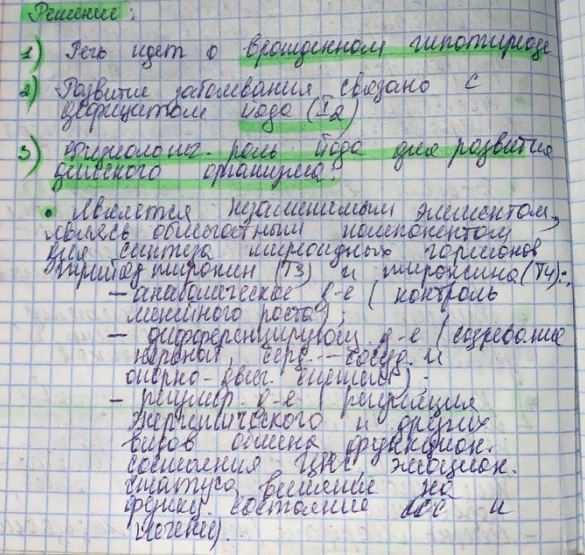 Решение:
1) Речь идет о врожденном гипотиреозе
2) Развитие заболевания связано с
дефицитом йода (I2)
3) физиолог. роль йода для развития
детского организма:
• Является незаменимым элементом,
являясь областным компонентом
для синтеза тиреоидных гормонов
трийодтиронин (Т3) и тироксина (Т4):
– анаболическое д-е (контроль
линейного роста);
– дифференцирующ. д-е (созревание
нервной, серд.-сосуд. и
опорно-двиг. систем);
– регулир. д-е (регуляция
энергетического и других
видов обмена, функцион.
состояния ЦНС, эмоцион.
статуса, влияние на
функц. состояние ССС и
печени).